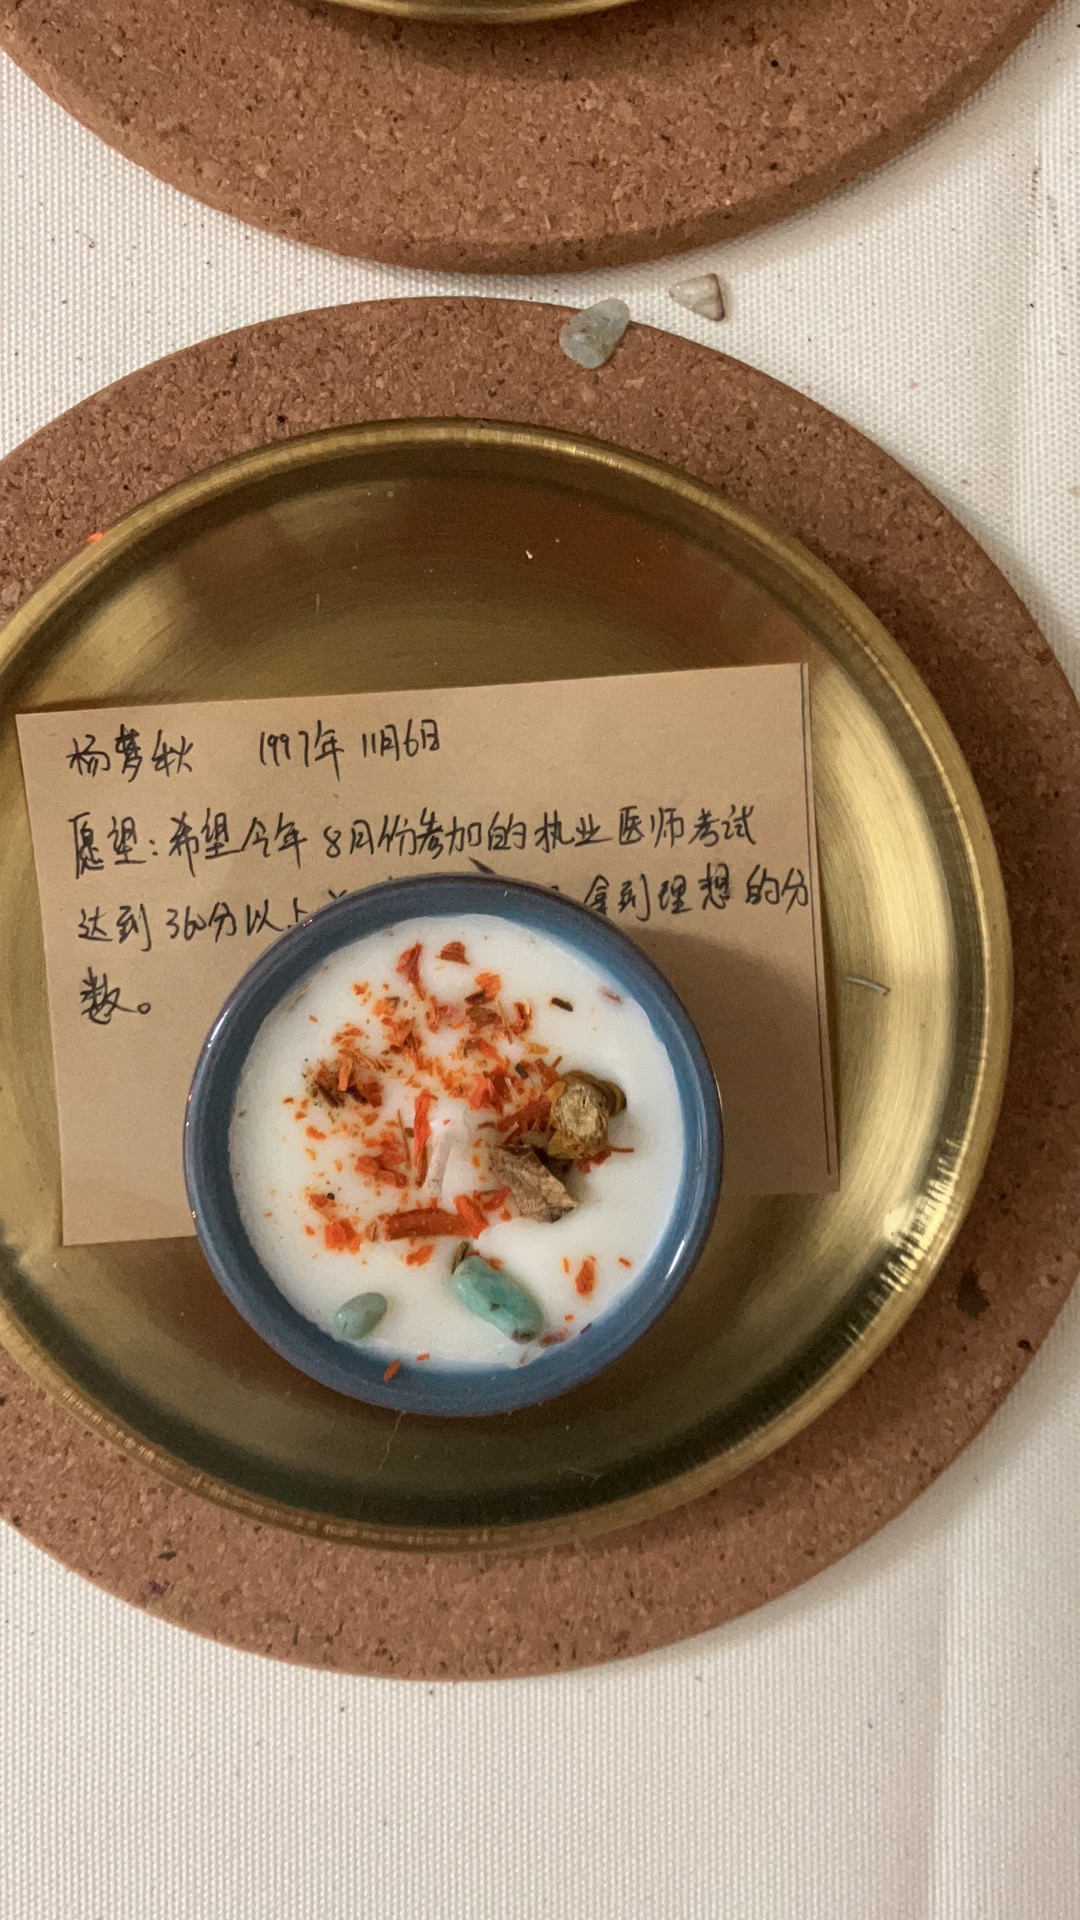 杨梦秋 1997年11月6日
愿望：希望今年8月份参加的执业医师考试
达到360分以上 拿到理想的分
数。